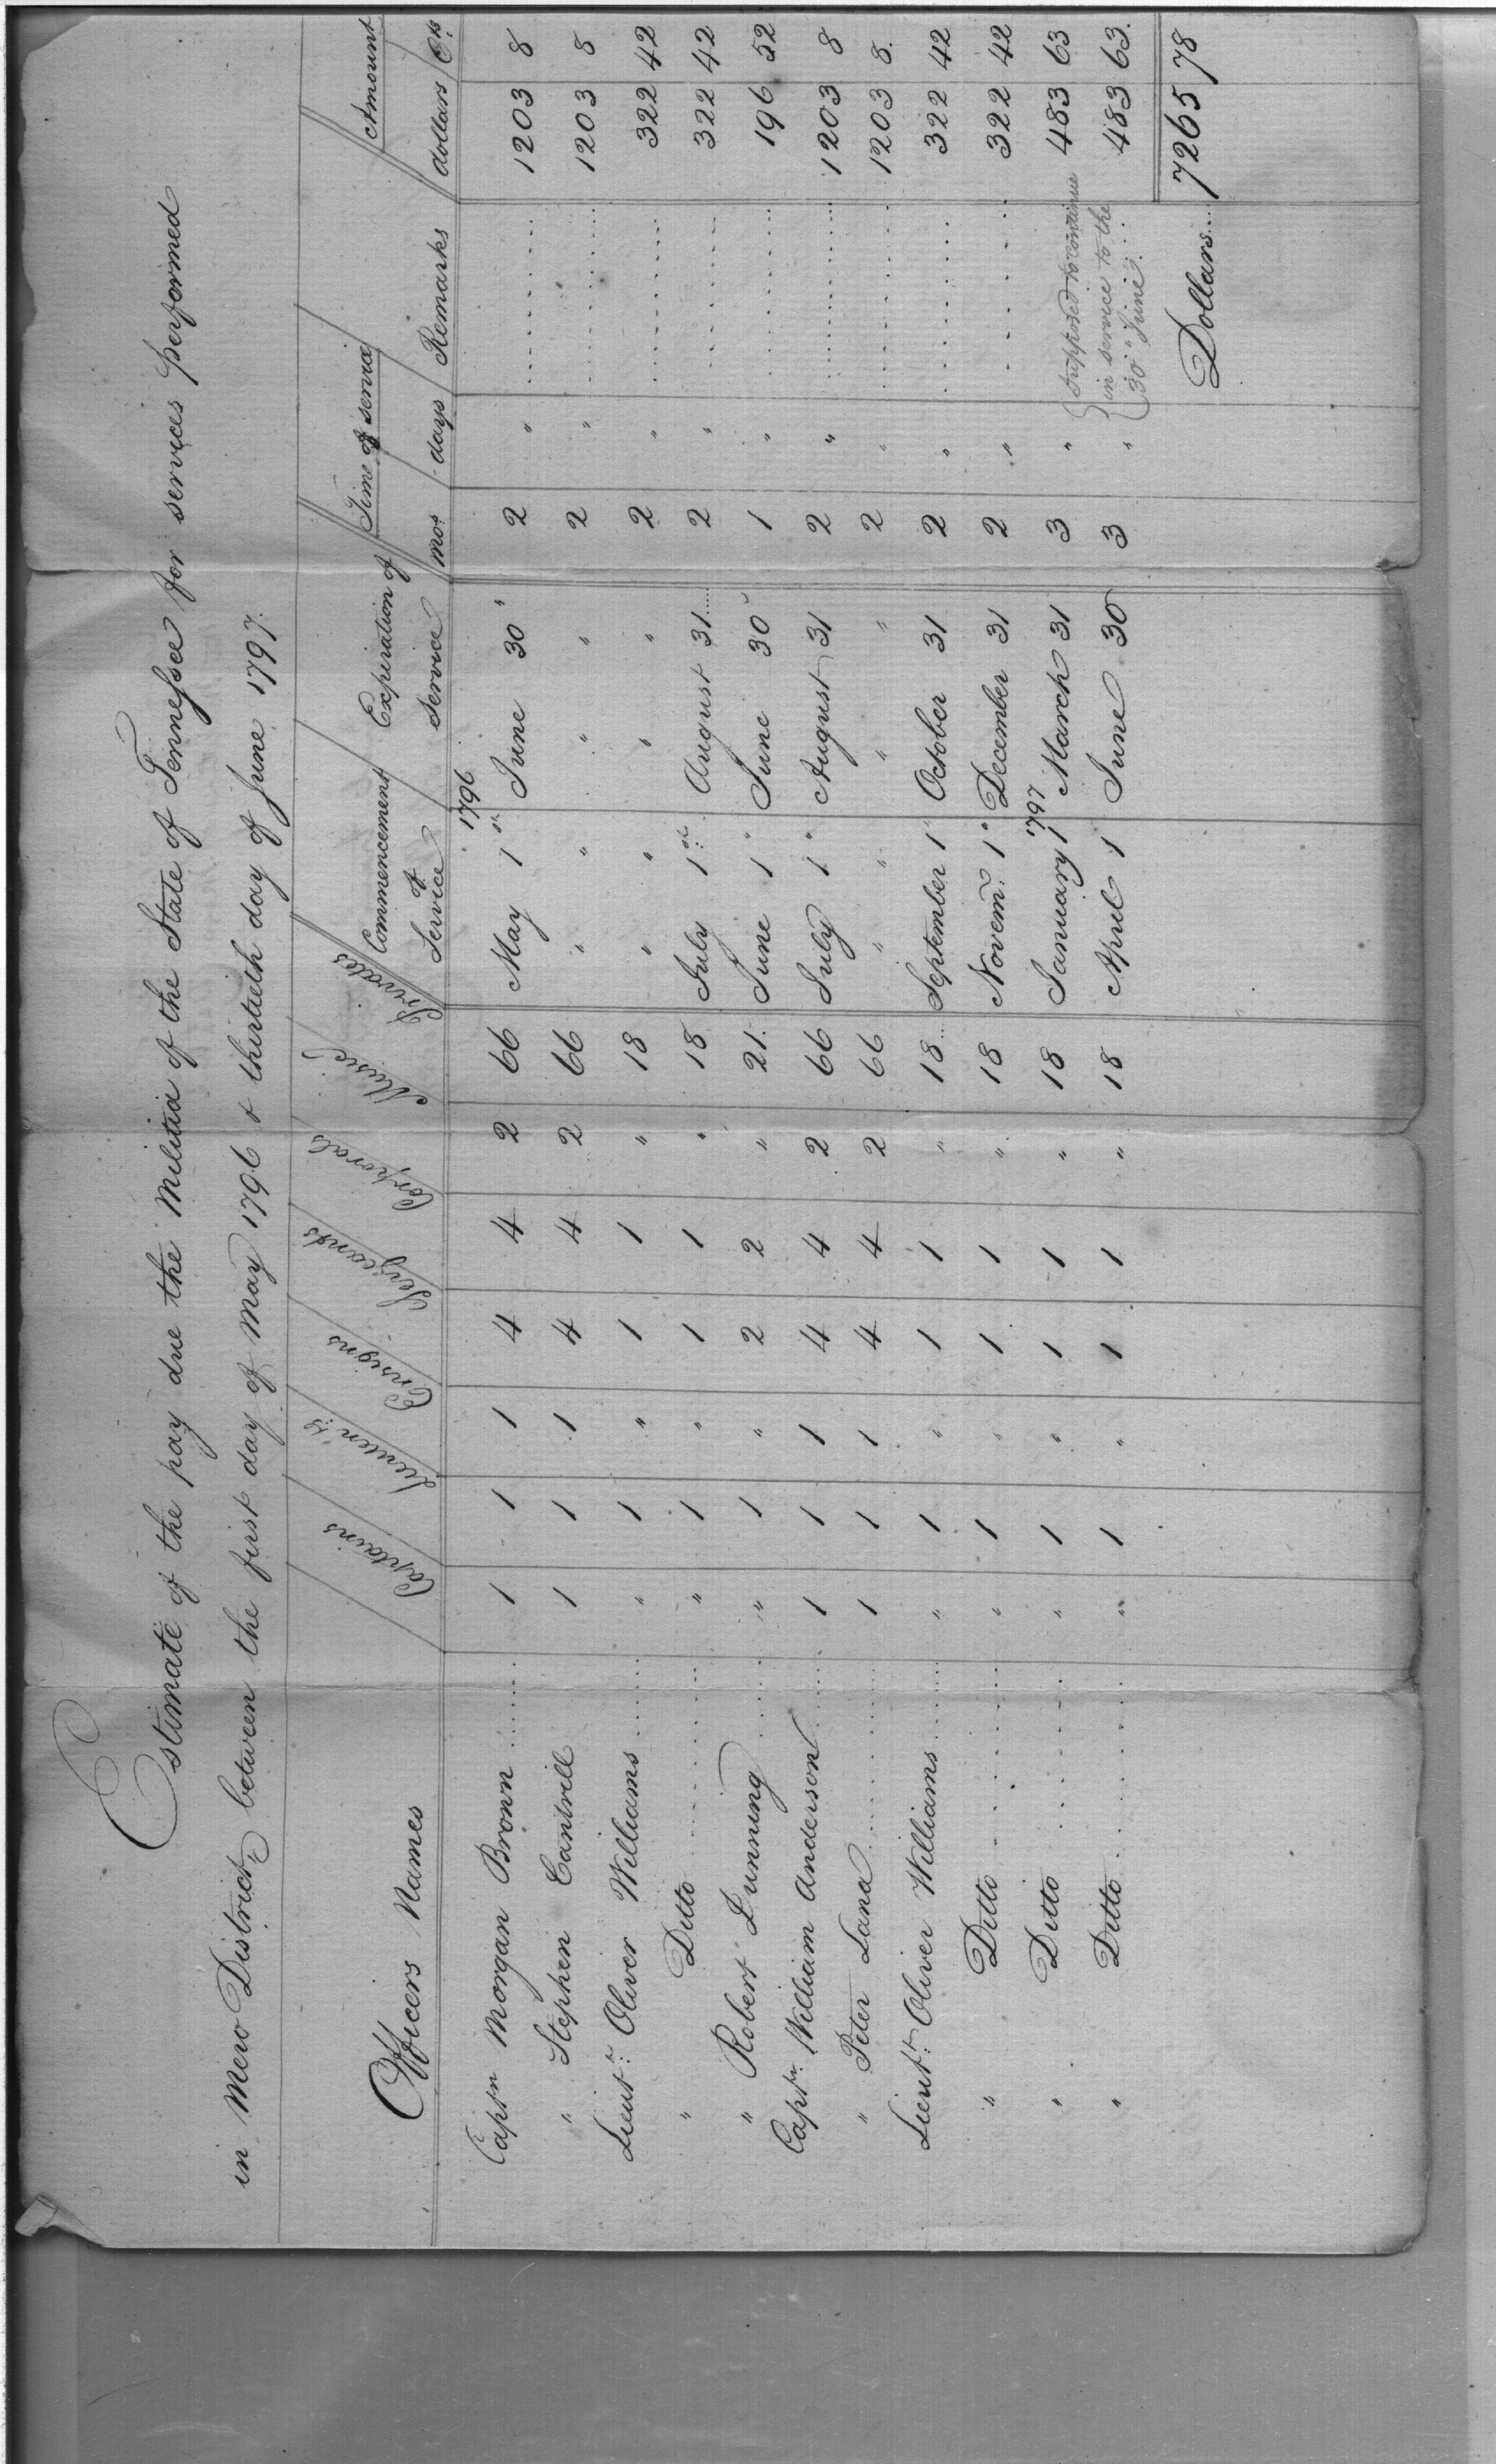 Estimate of the pay due the Militia of the State of Tennessee for services performed
in Mero District, between the first day of May 1796 & thirtieth day of June 1797.
Officers Names Captains Lieuten.ts Ensigns Serjeants Corporals Music Privates Commencement of Service Expiration of Service Time of service mos. days Remarks Amount dollars Cts.
1796
Captn Morgan Brown ...... 1 1 1 4 4 2 66 May 1st June 30" 2 " ........ 1203 8
" Stephen Cantrill 1 1 1 4 4 2 66 " " " " 2 " ........ 1203 8
Lieut.t Oliver Williams ...... " 1 " 1 1 " 18 " " " " 2 " ........ 322 42
" Ditto ........ " 1 " 1 1 " 18 July 1st August 31.... 2 " ........ 322 42
" Robert Dunning ..... " 1 " 2 2 " 21. June 1" June 30" 1 " ........ 196 52
Captn. William Anderson ..... 1 1 1 4 4 2 66 July 1" August 31 2 " ........ 1203 8
" Peter Lana ........ 1 1 1 4 4 2 66 " " " " 2 " ........ 1203 8.
Lieut.t Oliver Williams ...... " 1 " 1 1 " 18... September 1" October 31 2 " ........ 322 42
" Ditto ........ " 1 " 1 1 " 18 Novem. 1" December 31 2 " ........ 322 42
1797
" Ditto ........ " 1 " 1 1 " 18 January 1 March 31 3 " 483 63
" Ditto ........ " 1 " 1 1 " 18 April 1 June 30 3 " 483 63.
{Supposed to continue
in service to the
30" June. ....
Dollars... 7265 78